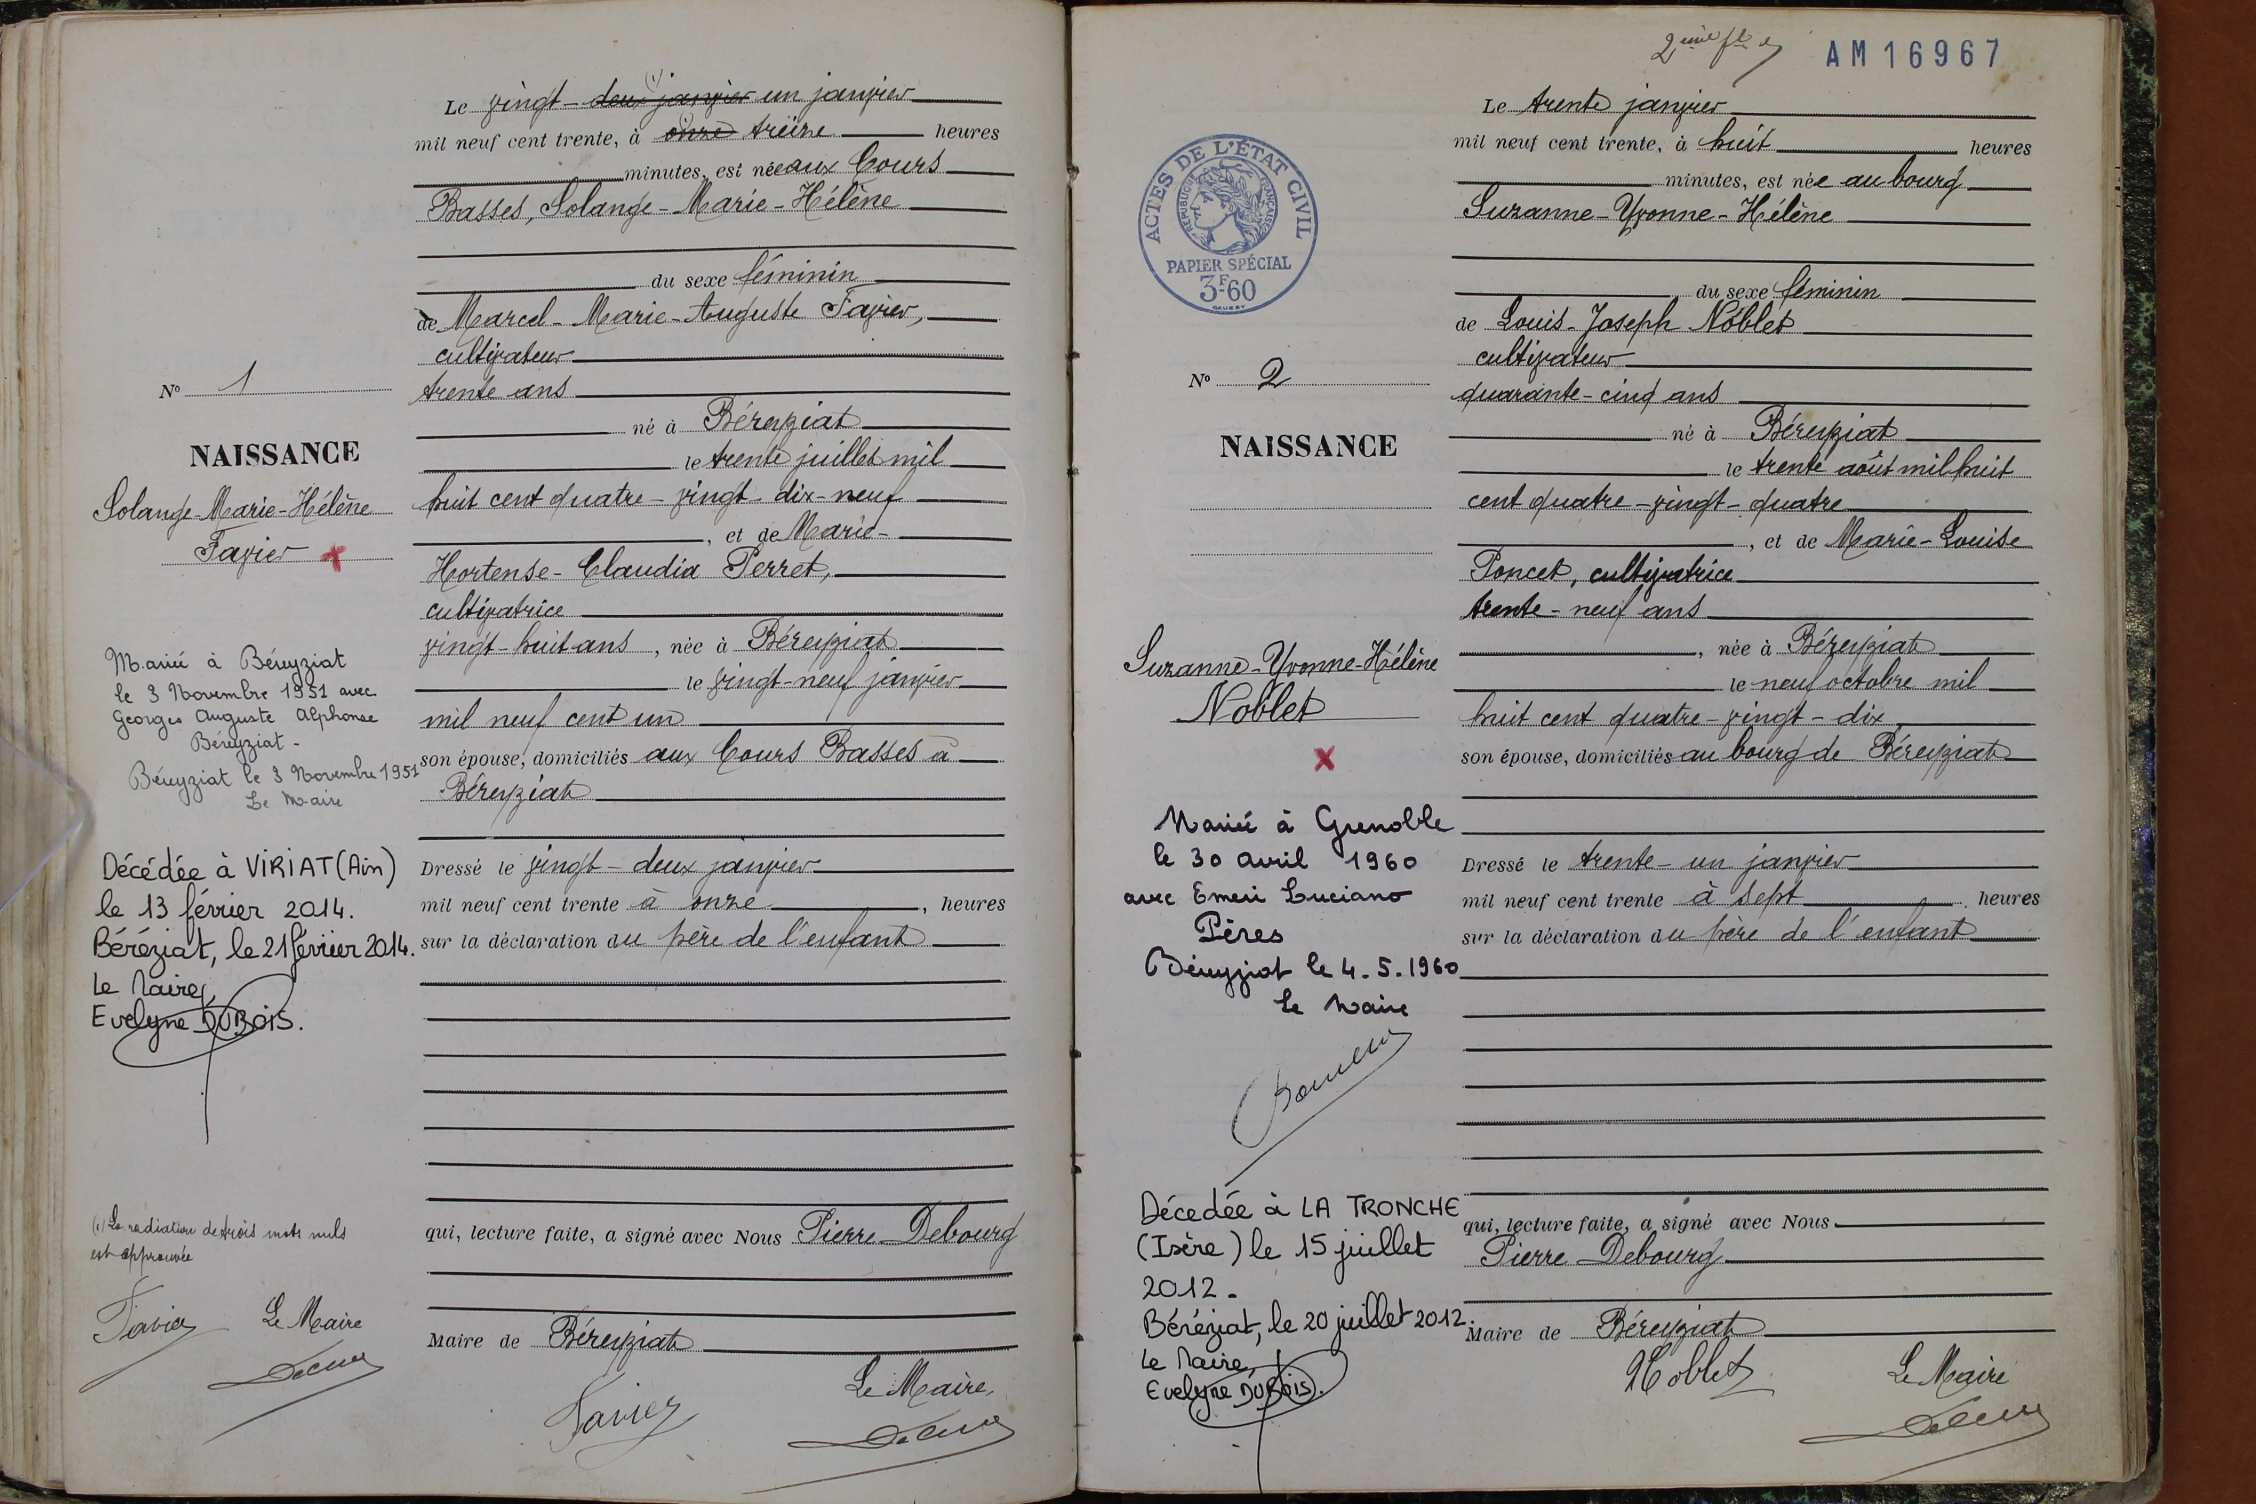 Le vingt - deux janvier un janvier
(1)
mil neuf cent trente, à onze treize heures
minutes, est née aux Cours
Basses, Solange - Marie - Hélène
du sexe féminin
de Marcel - Marie - Auguste Favier,
cultivateur
trente ans
né à Béreyziat
le trente juillet mil
huit cent quatre - vingt - dix - neuf
, et de Marie -
Hortense - Claudia Perret,
cultivatrice
vingt - huit ans , née à Béreyziat
le vingt - neuf janvier
mil neuf cent un
son épouse, domiciliés aux Cours Basses à
Béreyziat
Dressé le vingt - deux janvier
mil neuf cent trente à onze , heures
sur la déclaration du père de l'enfant
qui, lecture faite, a signé avec Nous Pierre Debourg
Maire de Béreyziat
Le Maire,
Favier
N° 1
NAISSANCE
Solange - Marie - Hélène
Favier
Mariée à Béreyziat
le 3 Novembre 1951 avec
Georges Auguste Alphonse
Béreyziat -
Béreyziat le 3 Novembre 1951
Le Maire
Décédée à VIRIAT (Ain)
le 13 février 2014.
Béréziat, le 21 février 2014.
Le Maire,
Evelyne DUBOIS.
(1) La radiation de trois mots nuls
est approuvée
Favier Le Maire
2ème flle
AM 16967
ACTES DE L'ÉTAT CIVIL
RÉPUBLIQUE FRANÇAISE
PAPIER SPÉCIAL
3F.60
Le trente janvier
mil neuf cent trente, à huit heures
minutes, est née au bourg
Suzanne - Yvonne - Hélène
du sexe féminin
de Louis - Joseph Noblet
cultivateur
quarante - cinq ans
né à Béreyziat
le trente août mil huit
cent quatre - vingt - quatre
, et de Marie - Louise
Poncet, cultivatrice
trente - neuf ans
, née à Béreyziat
le neuf octobre mil
huit cent quatre - vingt - dix
son épouse, domiciliés au bourg de Béreyziat
Dressé le trente - un janvier
mil neuf cent trente à sept , heures
sur la déclaration du père de l'enfant
qui, lecture faite, a signé avec Nous
Pierre Debourg
Maire de Béreyziat
Noblet Le Maire
N° 2
NAISSANCE
Suzanne - Yvonne - Hélène
Noblet
Mariée à Grenoble
le 30 avril 1960
avec Emeri Luciano
Pères
Béreyziat le 4.5.1960
Le Maire
Décédée à LA TRONCHE
(Isère) le 15 juillet
2012.
Béréziat, le 20 juillet 2012.
Le Maire,
Evelyne DUBOIS.